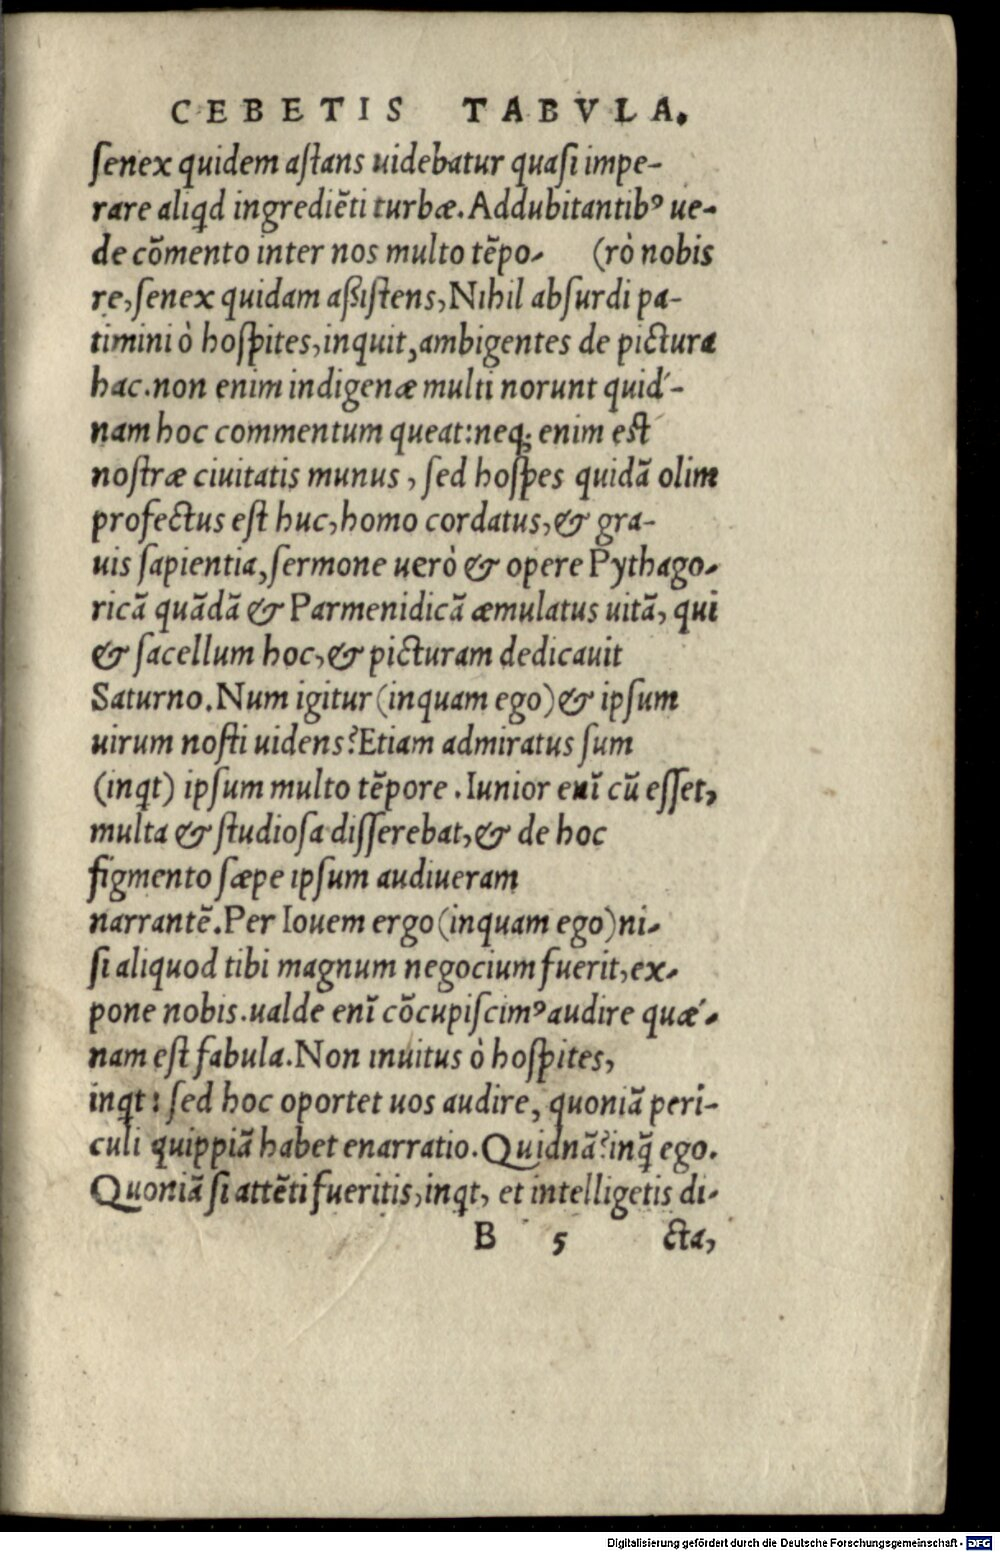 CEBETIS TABVLA.
ſenex quidem aſtans uidebatur quaſi impe-
rare aliqd ingrediẽti turbæ. Addubitantibꝰ ue-
de cõmento inter nos multo tẽpo- (rò nobis
re, ſenex quidam aßiſtens, Nihil abſurdi pa-
timini ò hoſpites, inquit, ambigentes de pictura
hac. non enim indigenæ multi norunt quid'-
nam hoc commentum queat: neq; enim eſt
noſtræ ciuitatis munus, ſed hoſpes quidã olim
profectus eſt huc, homo cordatus, & gra-
uis ſapientia, ſermone uerò & opere Pythago-
ricã quãdã & Parmenidicã æmulatus uitã, qui
& ſacellum hoc, & picturam dedicauit
Saturno. Num igitur (inquam ego) & ipſum
uirum noſti uidens? Etiam admiratus ſum
(inqt) ipſum multo tẽpore. Iunior enĩ cũ eſſet,
multa & ſtudioſa diſſerebat, & de hoc
figmento ſæpe ipſum audiueram
narrantẽ. Per Iouem ergo (inquam ego) ni-
ſi aliquod tibi magnum negocium fuerit, ex-
pone nobis. ualde enĩ cõcupiſcimꝰ audire quæ'-
nam eſt fabula. Non inuitus ò hoſpites,
inqt: ſed hoc oportet uos audire, quoniã peri-
culi quippiã habet enarratio. Quidnã? inq̃ ego.
Quoniã ſi attẽti fueritis, inqt, et intelligetis di-
B 5 cta,
Digitalisierung gefördert durch die Deutsche Forschungsgemeinschaft - DFG